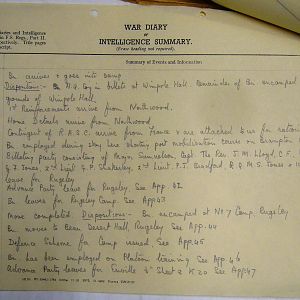 WAR DIARY
or
INTELLIGENCE SUMMARY.
(Erase heading not required).
Diaries and Intelligence
in F.S. Regs., Part II.
respectively. Title pages
script.
Summary of Events and Information
Bn arrives & goes into camp.
Dispositions:- Bn H.Q. Coy in billets at Wimpole Hall. Remainder of Bn encamped
grounds of Wimpole Hall.
1st Reinforcements arrive from Northwood.
Home Details arrive from Northwood.
Contingent of R.A.S.C. arrive from & are attached to Bn for rations
Bn employed during stay here starting post mobilization course on
Billeting party consisting of Major Capt. The Rev J.M. Lloyd, C.F.
Jones 2nd Lt P. Shakerley, 2nd Lt P.J. Bradford, R.Q.M.S. Jones &
leave for Rugeley
Advance Party leave for Rugeley. See App 42
Bn leaves for Rugeley Camp. See App 43
Move completed. Dispositions:- Bn encamped at No 7 Camp Rugeley
Bn moves to Beau Desert Hall, Rugeley. See App. 44
Defence Scheme for Camp issued. See App. 45
Bn has been employed on Platoon training. See App. 46
Advance Party leaves for Sheet 2 K 20 See App 47